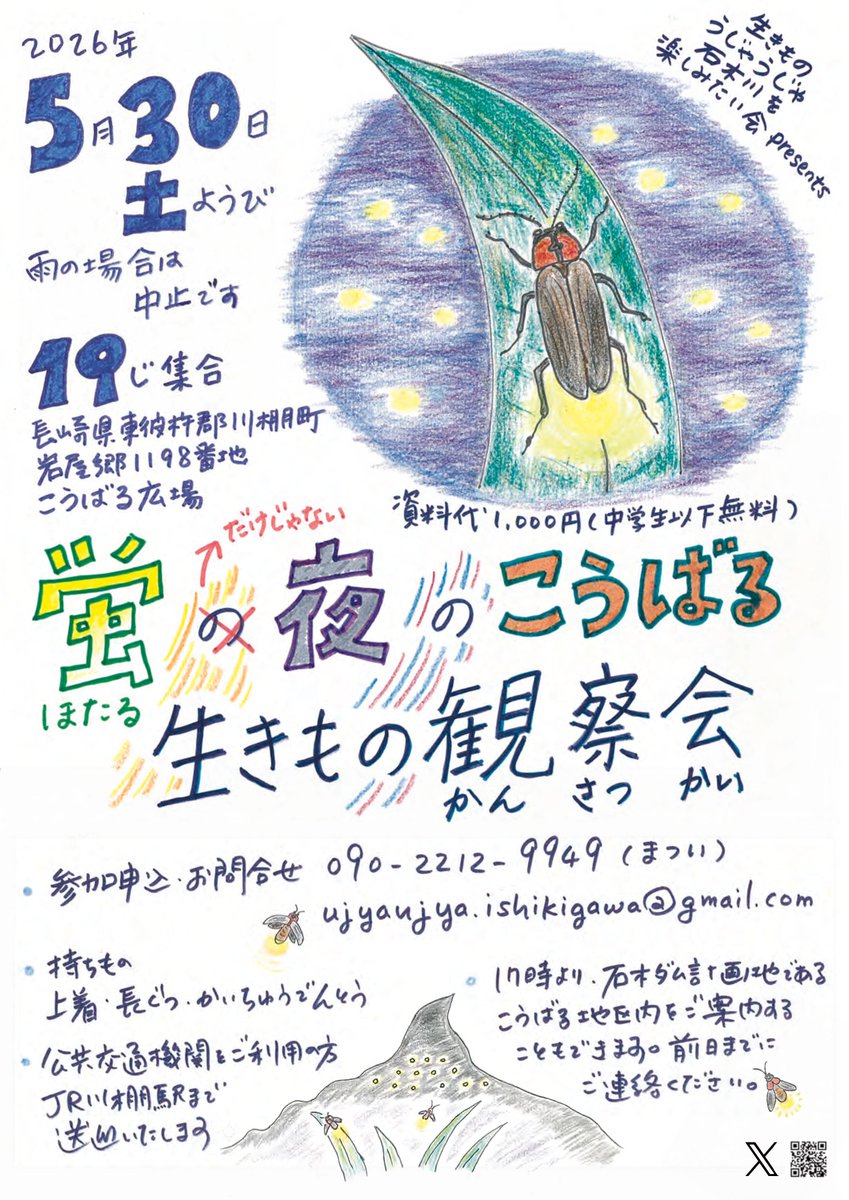 2026年
5月30日
土ようび
雨の場合は
中止です
19じ集合
長崎県東彼杵郡川棚町
岩屋郷1198番地
こうばる広場
生きもの
うじゃうじゃ
石木川を
楽しみたい会 presents
資料代1,000円(中学生以下無料)
だけじゃない
蛍の夜のこうばる
ほたる
生きもの観察会
かんさつかい
・参加申込・お問合せ 090-2212-9949(まつい)
ujyaujya.ishikigawa@gmail.com
・持ちもの
上着・長ぐつ・かいちゅうでんとう
・公共交通機関をご利用の方
JR川棚駅まで
送迎いたします
・17時より、石木ダム計画地である
こうばる地区内をご案内する
こともできます。前日までに
ご連絡ください。
X